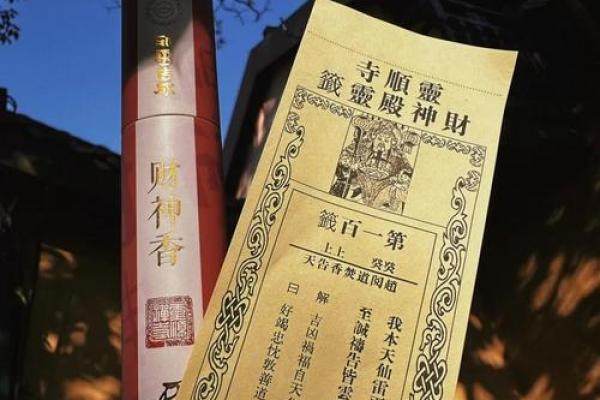 财神香
靈順禪寺
靈順寺
財神殿靈籤
第一百籤
癸癸 上上
趙閱道焚香告天
我本天仙雷
至誠禱告皆雲
解 吉凶禍福自天
曰 好竭忠忱敦善道